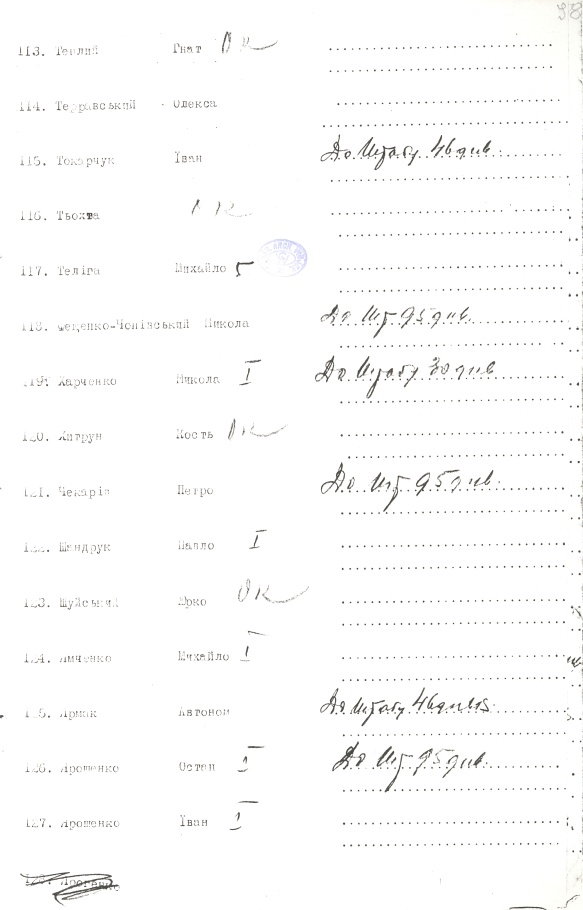 98
113. Теплий Гнат ОК
114. Терравський Олекса
115. Токарчук Іван До Штабу 46 див.
116. Тьохта ОК
117. Теліга Михайло
118. Феценко-Чопівський Микола До Шт 95 див.
119. Харченко Микола I До Штабу 30 див
120. Хитрун Кость ОК
121. Чекарів Петро До Шт 95 див.
122. Шандрук Павло I
123. Шуйський Юрко ОК
124. Ямченко Михайло I
125. Ярмак Автоном До Штабу 46 див
126. Ярошенко Остап I До Шт 95 див
127. Ярошенко Іван I
128.